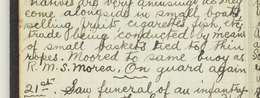 natives are very amusing as they
come alongside in small boats
selling fruit cigarettes fish, etc
trade being conducted by means
of small baskets tied to thin
ropes. Moored to same buoy as
R.M.S. Morea. On guard again
21st. Saw funeral of an infantry